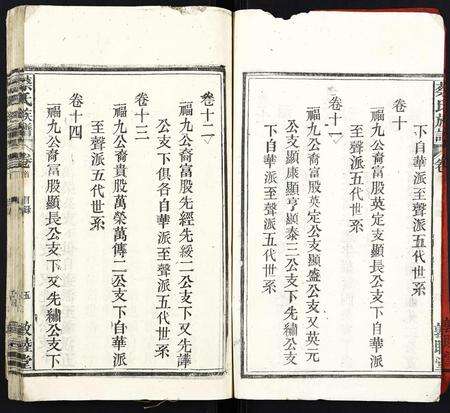 蔡氏族譜
卷
下自華派至聲派五代世系
卷十
福九公裔富股英定支顯長公支下自華派
至聲派五代世系
卷十一
福九公裔富股英定公支顯盛公支又英元
公支顯康顯亨顯泰三公支下自華派至聲派
五代世系
卷十二
福九公裔富股先經先綏二公支下又先譁
公支下俱各自華派至聲派五代世系
卷十三
福九公裔貴股萬榮萬傳二公支下自華派
至聲派五代世系
卷十四
福九公裔富股顯長公支下又先繡公支下
蔡氏族譜
卷首
目錄
五
敦睦堂